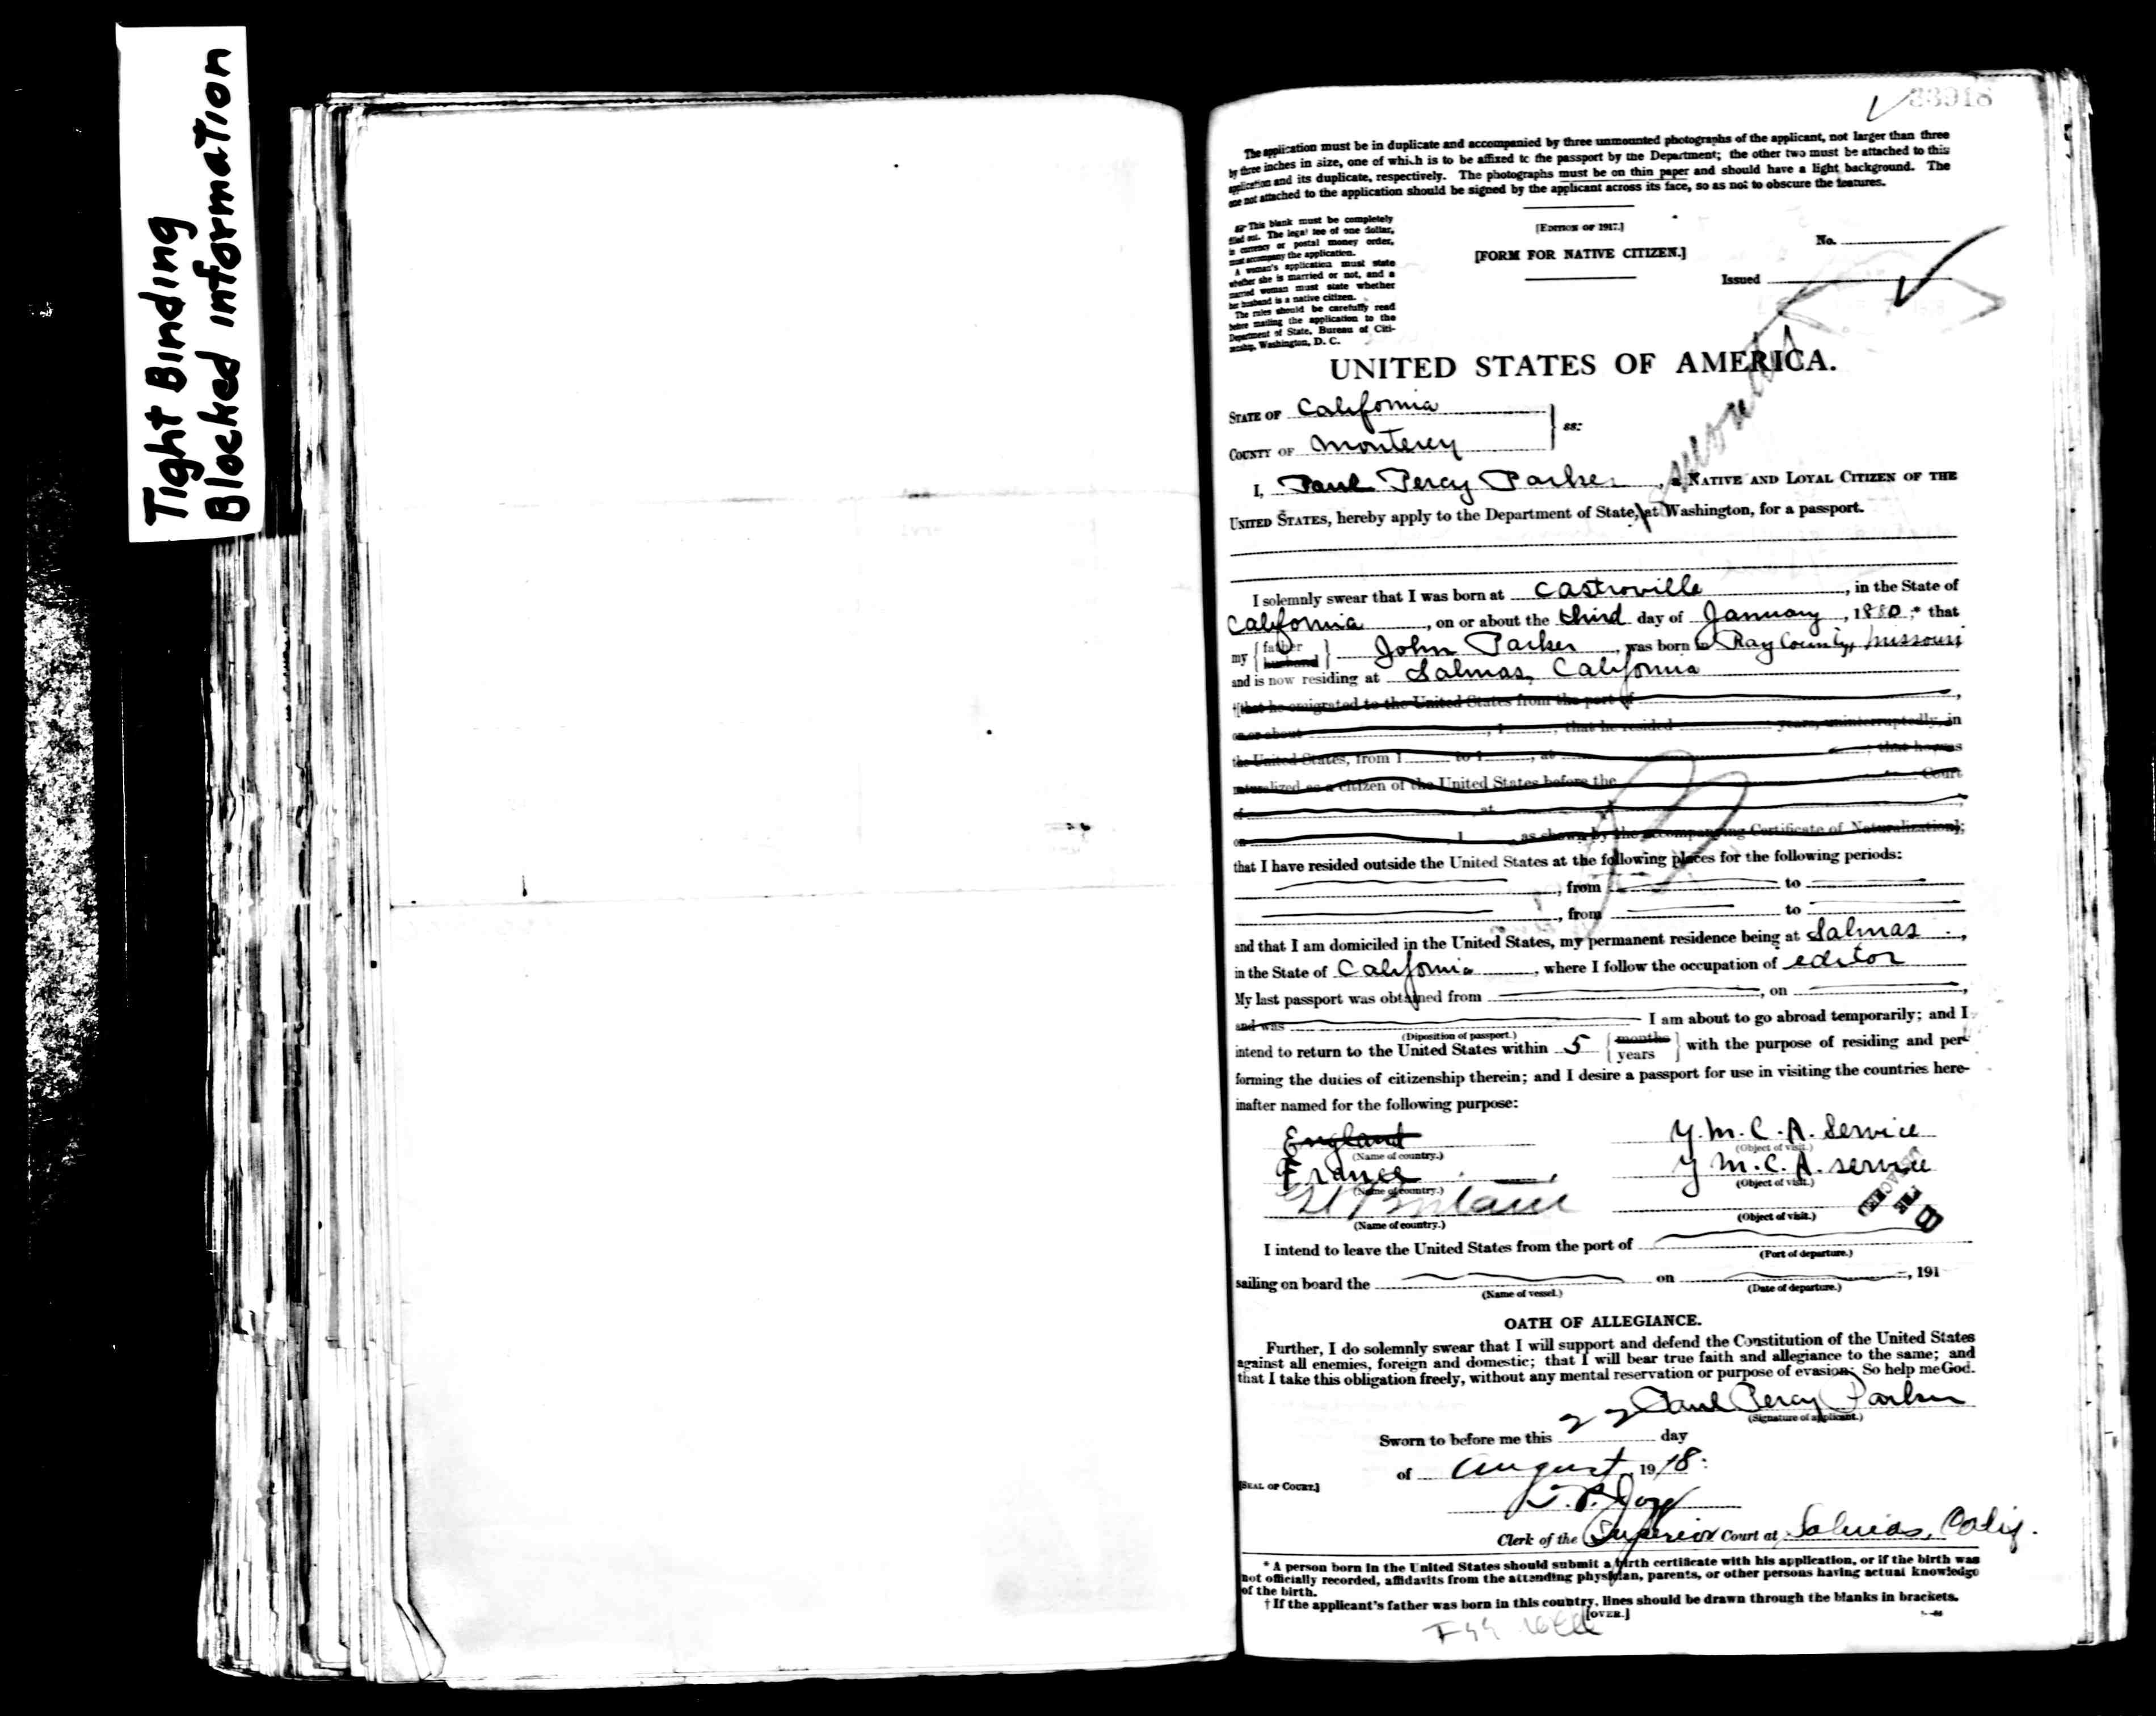 Tight Binding
Blocked information
33918
The application must be in duplicate and accompanied by three unmounted photographs of the applicant, not larger than three
by three inches in size, one of which is to be affixed to the passport by the Department; the other two must be attached to this
application and its duplicate, respectively. The photographs must be on thin paper and should have a light background. The
one not attached to the application should be signed by the applicant across its face, so as not to obscure the features.
This blank must be completely
filled out. The legal fee of one dollar,
in currency or postal money order,
must accompany the application.
A woman's application must state
whether she is married or not, and a
married woman must state whether
her husband is a native citizen.
The rules should be carefully read
before mailing the application to the
Department of State, Bureau of Citi-
zenship, Washington, D. C.
[EDITION OF 1917.]
[FORM FOR NATIVE CITIZEN.]
No.
Issued
UNITED STATES OF AMERICA.
STATE OF California
COUNTY OF Monterey
ss:
I, Paul Percy Parker, a NATIVE AND LOYAL CITIZEN OF THE
UNITED STATES, hereby apply to the Department of State, at Washington, for a passport.
I solemnly swear that I was born at Castroville, in the State of
California, on or about the third day of January, 1880;* that
my {father husband} John Parker, was born in Ray County, Missouri
and is now residing at Salinas, California
†[that he emigrated to the United States from the port of ,
on or about , 1 , that he resided years, uninterruptedly, in
the United States, from 1 to 1 , at ; that he was
naturalized as a citizen of the United States before the Court
of , at ,
on , 1 , as shown by the accompanying Certificate of Naturalization];
that I have resided outside the United States at the following places for the following periods:
, from to
, from to
and that I am domiciled in the United States, my permanent residence being at Salinas,
in the State of California, where I follow the occupation of editor
My last passport was obtained from , on ,
and was I am about to go abroad temporarily; and I
(Diposition of passport.)
intend to return to the United States within 5 {months years} with the purpose of residing and per-
forming the duties of citizenship therein; and I desire a passport for use in visiting the countries here-
inafter named for the following purpose:
England Y.M.C.A. Service
(Name of country.) (Object of visit.)
France Y M.C.A. service
(Name of country.) (Object of visit.)
Gt Britain
(Name of country.) (Object of visit.)
I intend to leave the United States from the port of
(Port of departure.)
sailing on board the on , 191
(Name of vessel.) (Date of departure.)
OATH OF ALLEGIANCE.
Further, I do solemnly swear that I will support and defend the Constitution of the United States
against all enemies, foreign and domestic; that I will bear true faith and allegiance to the same; and
that I take this obligation freely, without any mental reservation or purpose of evasion: So help me God.
Paul Percy Parker
(Signature of applicant.)
Sworn to before me this 22 day
of August, 1918.
[SEAL OF COURT.]
Clerk of the Superior Court at Salinas, Calif.
* A person born in the United States should submit a birth certificate with his application, or if the birth was
not officially recorded, affidavits from the attending physician, parents, or other persons having actual knowledge
of the birth.
† If the applicant's father was born in this country, lines should be drawn through the blanks in brackets.
[OVER.]